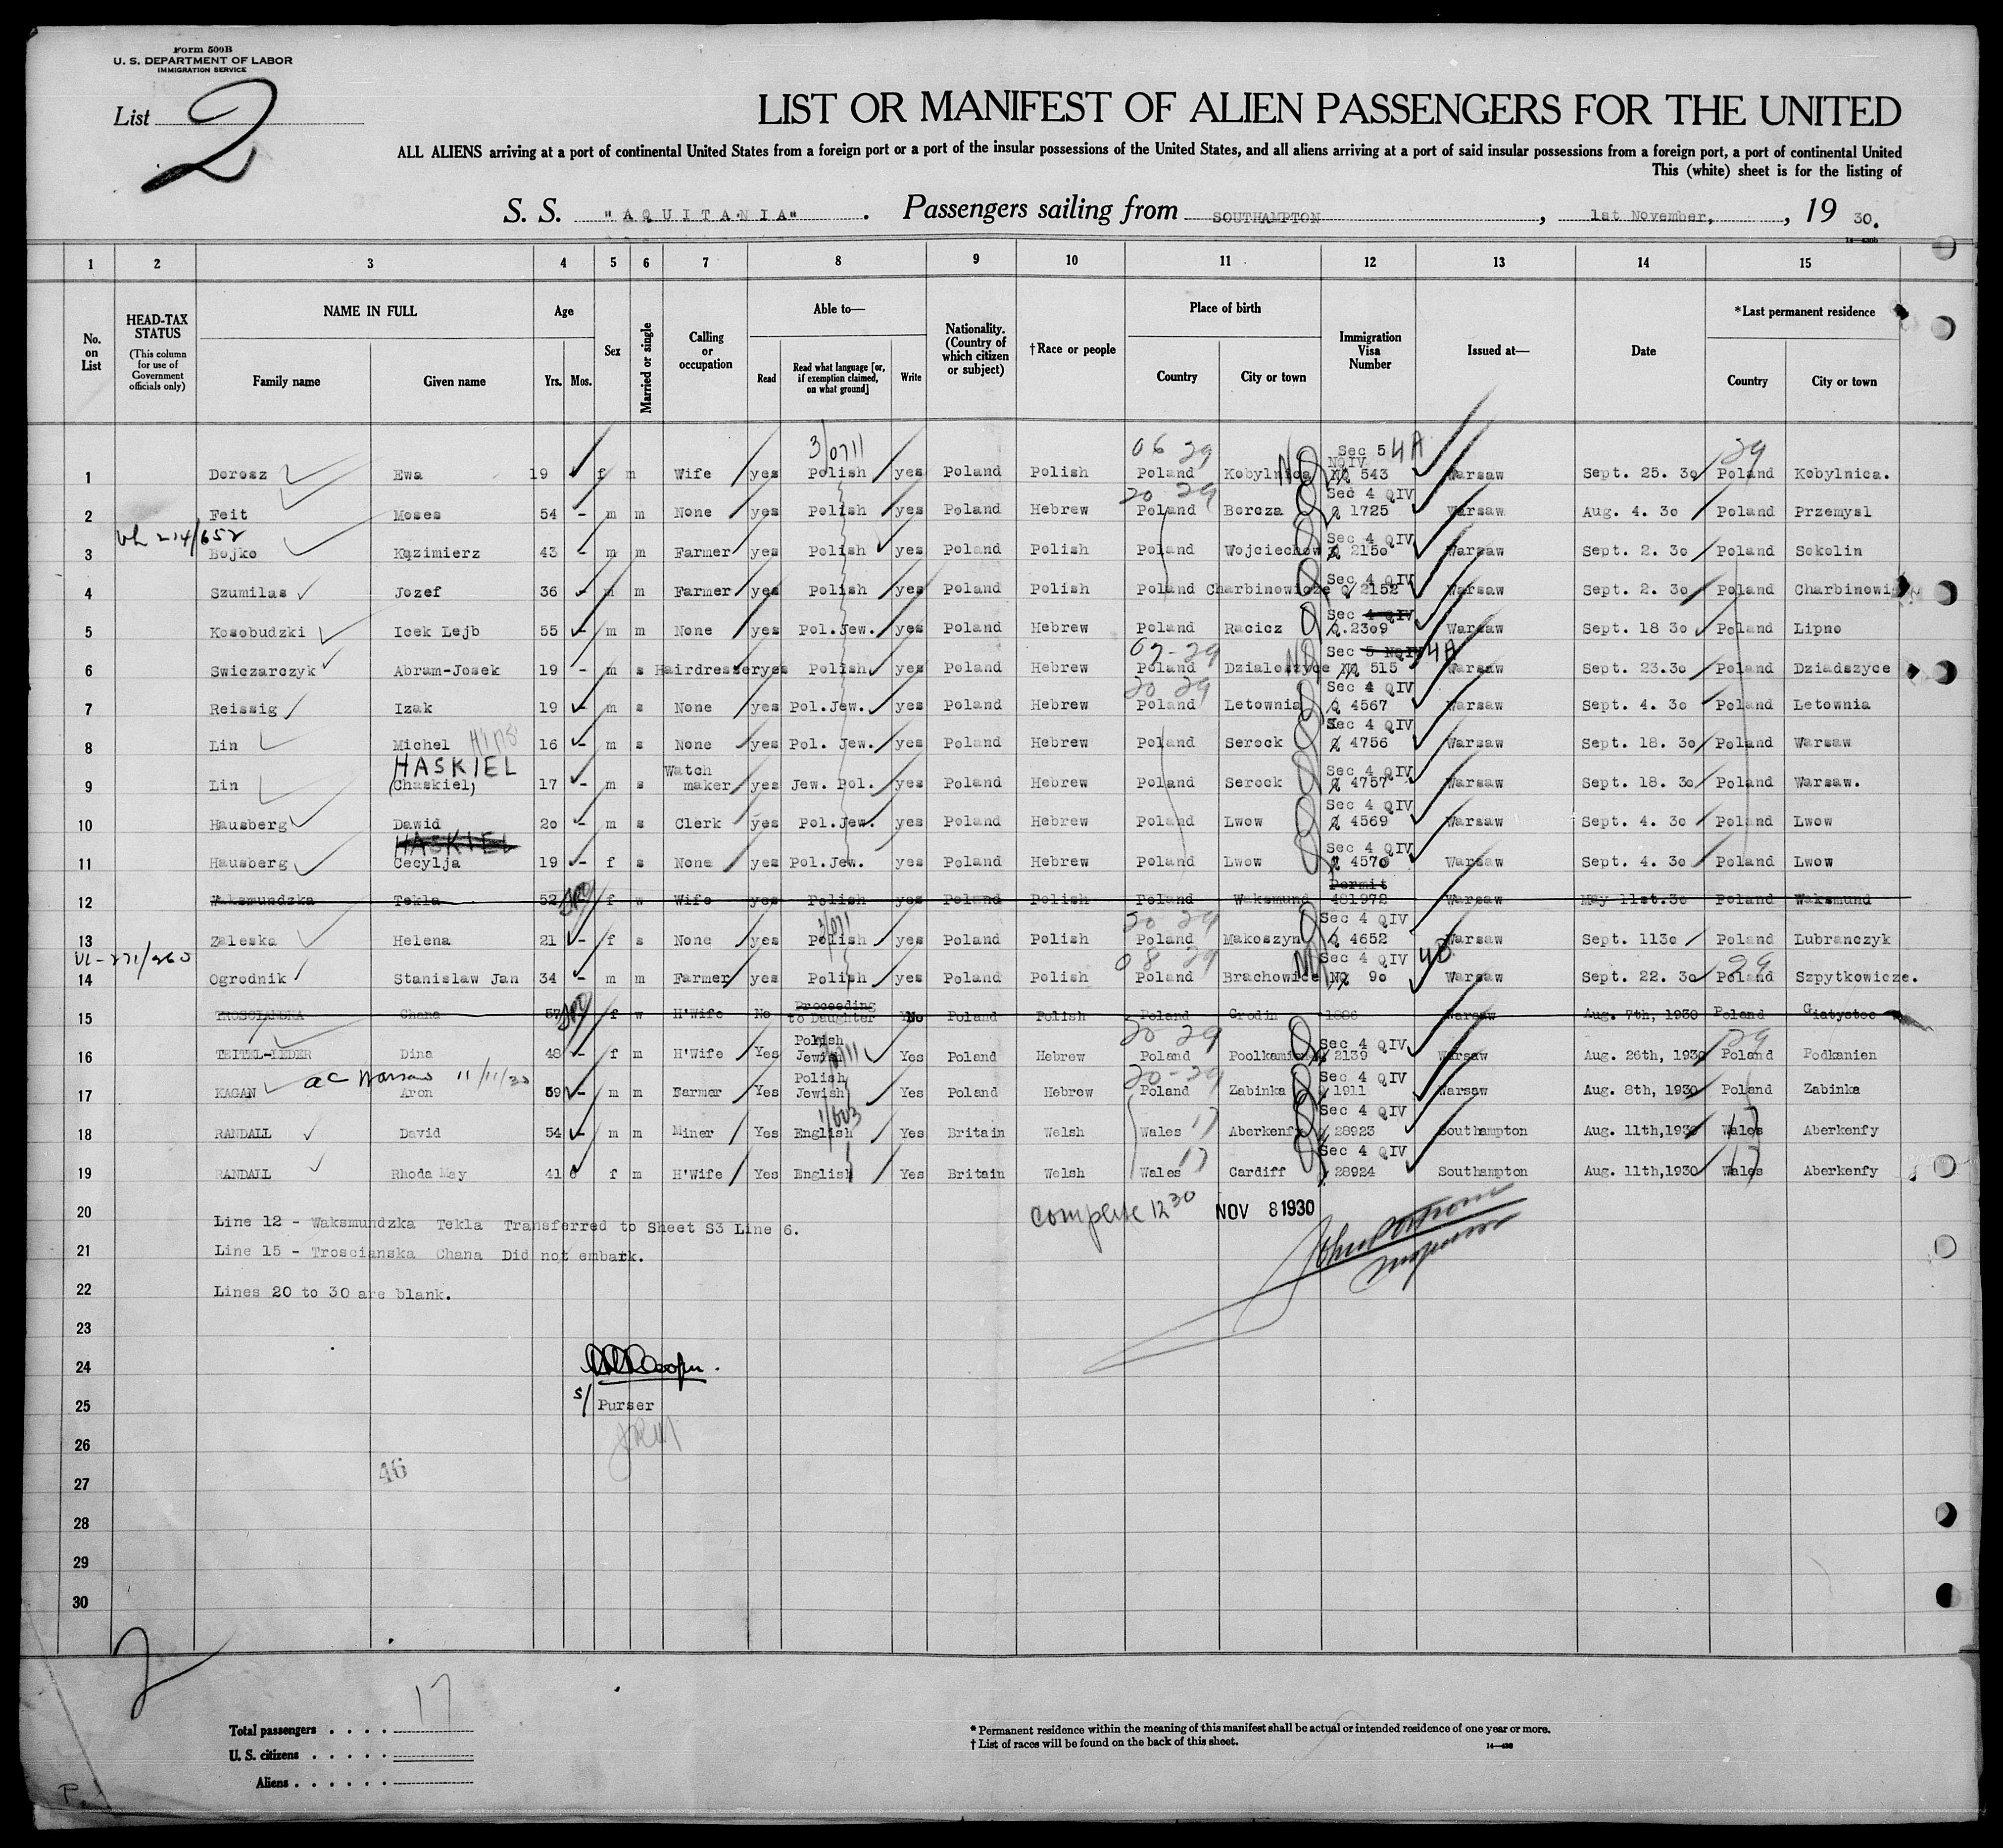 Form 500B
U. S. DEPARTMENT OF LABOR
IMMIGRATION SERVICE
List 2
LIST OR MANIFEST OF ALIEN PASSENGERS FOR THE UNITED
ALL ALIENS arriving at a port of continental United States from a foreign port or a port of the insular possessions of the United States, and all aliens arriving at a port of said insular possessions from a foreign port, a port of continental United
This (white) sheet is for the listing of
S. S. "AQUITANIA" . Passengers sailing from SOUTHAMPTON , 1st November, , 19 30.
1 2 3 4 5 6 7 8 9 10 11 12 13 14 15
No. on List
HEAD-TAX STATUS (This column for use of Government officials only)
NAME IN FULL Family name Given name
Age Yrs. Mos.
Sex
Married or single
Calling or occupation
Able to— Read Read what language [or, if exemption claimed, on what ground] Write
Nationality. (Country of which citizen or subject)
†Race or people
Place of birth Country City or town
Immigration Visa Number
Issued at—
Date
*Last permanent residence Country City or town
3/0711 06 29 Sec 5 4A 29
NQIV
1 Dorosz Ewa 19 f m Wife yes Polish yes Poland Polish Poland Kobylnica NQ 543 Warsaw Sept. 25. 30 Poland Kobylnica.
20 29 Sec 4 QIV
2 Feit Moses 54 - m m None yes Polish yes Poland Hebrew Poland Borcza Q 1725 Warsaw Aug. 4. 30 Poland Przemysl
Sec 4 QIV
3 Bojko Kazimierz 43 - m m Farmer yes Polish yes Poland Polish Poland Wojciechow 2150 Warsaw Sept. 2. 30 Poland Sokolin
Sec 4 QIV
4 Szumilas Jozef 36 - m m Farmer yes Polish yes Poland Polish Poland Charbinowicze Q 2152 Warsaw Sept. 2. 30 Poland Charbinowi
Sec 4 QIV
5 Kosobudzki Icek Lejb 55 - m m None yes Pol.Jew. yes Poland Hebrew Poland Racicz Q.2309 Warsaw Sept. 18 30 Poland Lipno
07-29 Sec 5 NQIV 4A
6 Swiczarczyk Abram-Josek 19 - m s Hairdresser yes Polish yes Poland Hebrew Poland Dzialoszyce NQ 515 Warsaw Sept. 23.30 Poland Dziadszyce
20 29 Sec 4 QIV
7 Reissig Izak 19 - m s None yes Pol.Jew. yes Poland Hebrew Poland Letownia Q 4567 Warsaw Sept. 4. 30 Poland Letownia
Sec 4 QIV
8 Lin Michel 16 - m s None yes Pol. Jew. yes Poland Hebrew Poland Serock Q 4756 Warsaw Sept. 18. 30 Poland Warsaw
HASKIEL Sec 4 QIV
9 Lin (Chaskiel) 17 - m s Watch maker yes Jew. Pol. yes Poland Hebrew Poland Serock Q 4757 Warsaw Sept. 18. 30 Poland Warsaw.
Sec 4 QIV
10 Hausberg Dawid 20 - m s Clerk yes Pol.Jew. yes Poland Hebrew Poland Lwow Q 4569 Warsaw Sept. 4. 30 Poland Lwow
HASKIEL Sec 4 QIV
11 Hausberg Cecylja 19 - f s None yes Pol.Jew. yes Poland Hebrew Poland Lwow Q 4570 Warsaw Sept. 4. 30 Poland Lwow
Permit
12 Waksmundzka Tekla 52 f w Wife yes Polish yes Poland Polish Poland Waksmund 481972 Warsaw May 11st.30 Poland Waksmund
20 29 Sec 4 QIV
13 Zaleska Helena 21 - f s None yes Polish yes Poland Polish Poland Makoszyn Q 4652 Warsaw Sept. 1130 Poland Lubranczyk
08 29 Sec 4 QIV 4B 29
14 Ogrodnik Stanislaw Jan 34 - m m Farmer yes Polish yes Poland Polish Poland Brachowice NQ 90 Warsaw Sept. 22. 30 Poland Szpytkowicze.
15 TROSCIANSKA Chana 57 f w H'Wife No Proceeding to Daughter No Poland Polish Poland Grodin 1886 Warsaw Aug. 7th, 1930 Poland
20 29 Sec 4 QIV 29
16 TEITEL-LEDER Dina 48 - f m H'Wife Yes Polish Jewish Yes Poland Hebrew Poland 2139 Warsaw Aug. 26th, 1930 Poland Podkanien
ac Warsaw 11/11/30 20-29 Sec 4 QIV
17 KAGAN Aron 59 - m m Farmer Yes Polish Jewish Yes Poland Hebrew Poland Zabinka 1911 Warsaw Aug. 8th, 1930 Poland Zabinka
1/603 Sec 4 QIV
18 RANDALL David 54 - m m Miner Yes English Yes Britain Welsh Wales 17 Aberkenfy 28923 Southampton Aug. 11th,1930 Wales 17 Aberkenfy
Sec 4 QIV
19 RANDALL Rhoda May 41 f m H'Wife Yes English Yes Britain Welsh Wales 17 Cardiff 28924 Southampton Aug. 11th,1930 Wales 17 Aberkenfy
20 complete 12 30 NOV 8 1930
Line 12 - Waksmundzka Tekla Transferred to Sheet S3 Line 6.
21 Line 15 - Troscianska Chana Did not embark.
22 Lines 20 to 30 are blank.
23
24
25 s/ Purser
26
27 46
28
29
30
2
Total passengers . . . . 17
U. S. citizens . . . . .
Aliens . . . . . .
* Permanent residence within the meaning of this manifest shall be actual or intended residence of one year or more.
† List of races will be found on the back of this sheet.